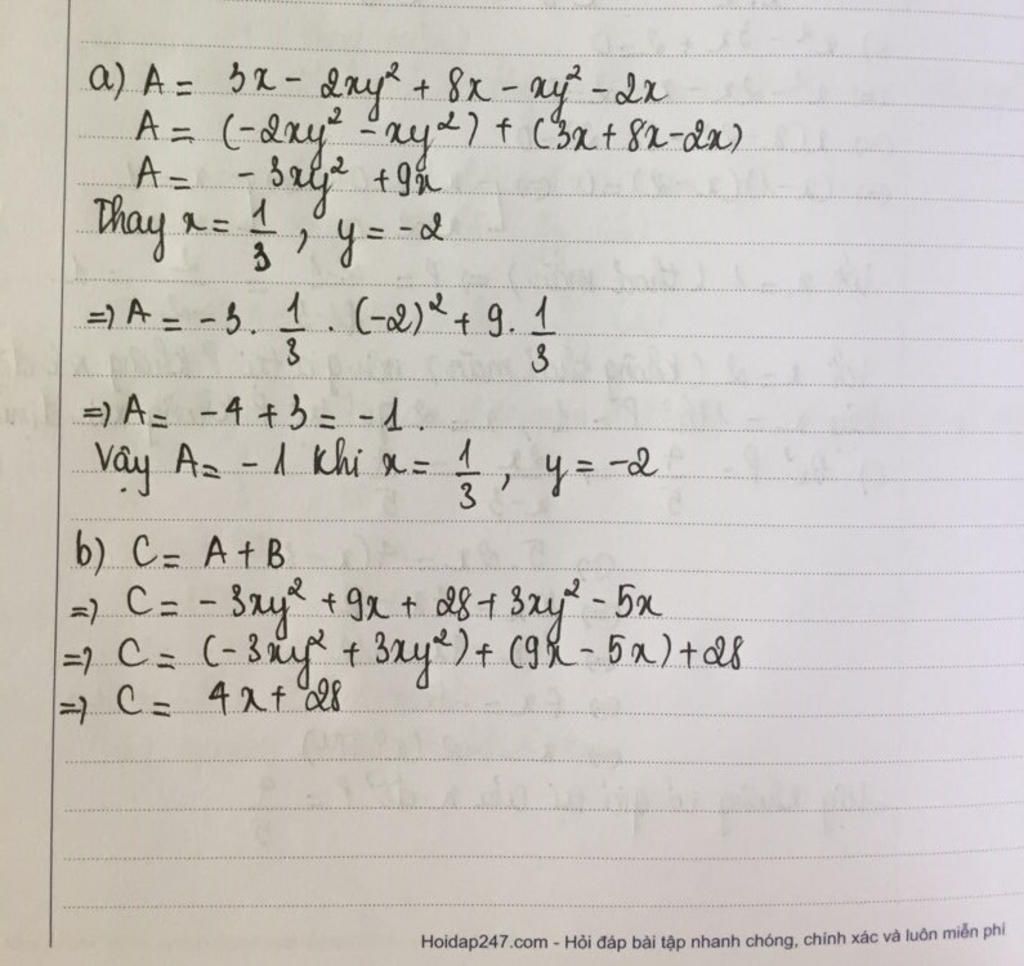 a) A = 3x - 2xy² + 8x - xy² - 2x
A = (-2xy² - xy²) + (3x + 8x - 2x)
A = - 3xy² + 9x
Thay x = 1/3 , y = -2
=> A = -3 . 1/3 . (-2)² + 9 . 1/3
=> A = -4 + 3 = -1.
Vậy A = -1 khi x = 1/3 , y = -2
b) C = A + B
=> C = - 3xy² + 9x + 28 + 3xy² - 5x
=> C = (-3xy² + 3xy²) + (9x - 5x) + 28
=> C = 4x + 28
Hoidap247.com - Hỏi đáp bài tập nhanh chóng, chính xác và luôn miễn phí